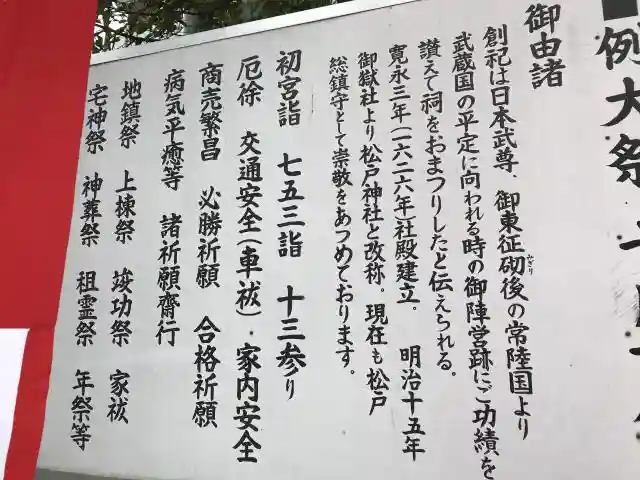 例大祭 十
御由諸
創祀は日本武尊、御東征砌後の常陸国より
みぎり
武蔵国の平定に向われる時の御陣営跡にご功績を
讃えて祠をおまつりしたと伝えられる。
寛永三年(一六二六年)社殿建立。 明治十五年
御嶽社より松戸神社と改称。現在も松戸
総鎮守として崇敬をあつめております。
初宮詣 七五三詣 十三参り
厄除 交通安全(車祓)・家内安全
商売繁昌 必勝祈願 合格祈願
病気平癒等 諸祈願斎行
地鎮祭 上棟祭 竣功祭 家祓
宅神祭 神葬祭 祖霊祭 年祭等